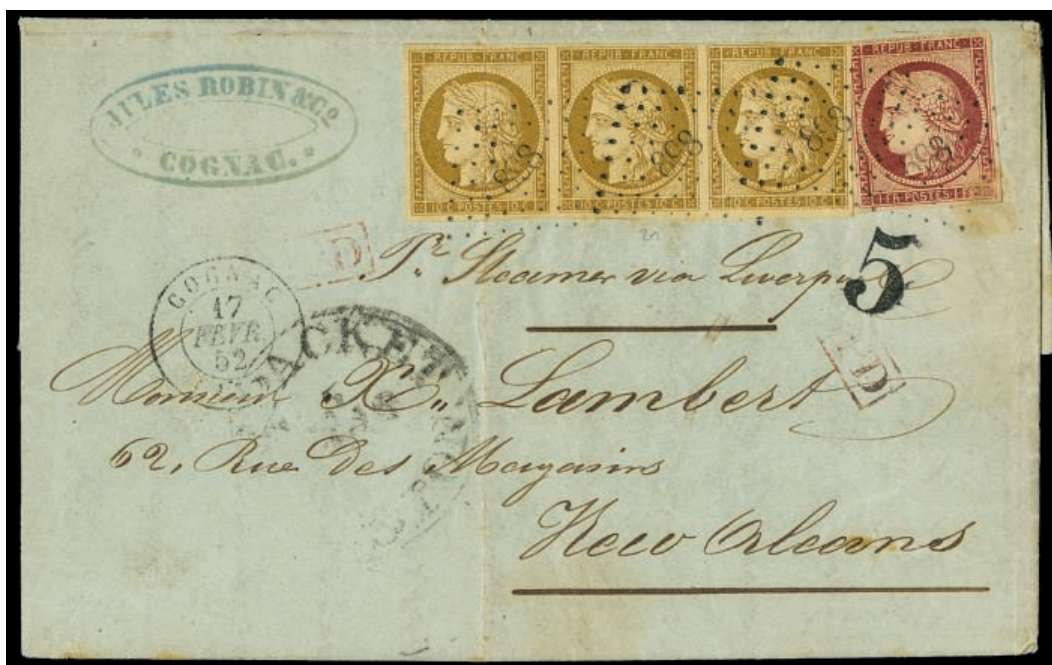 JULES ROBIN & Co
COGNAC.
REPUB·FRANC
10·C·POSTES·10·C
REPUB·FRANC
10·C·POSTES·10·C
REPUB·FRANC
10·C·POSTES·10·C
REPUB·FRANC
1·FR·POSTES·1·FR
858
858
858
858
Pr Steamer via Liverpool
5
COGNAC
17
FEVR.
52
PACKET
PD
Monsieur Lambert
62, Rue Des Magasins
New Orleans